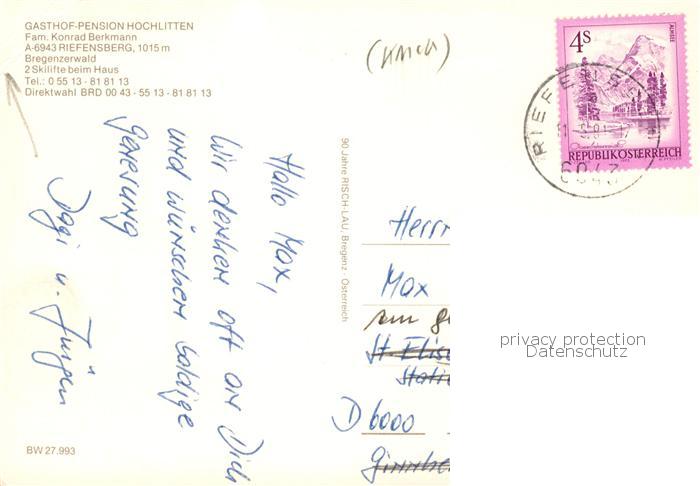 GASTHOF-PENSION HOCHLITTEN
Fam. Konrad Berkmann
A-6943 RIEFENSBERG, 1015 m
Bregenzerwald
2 Skilifte beim Haus
Tel.: 0 55 13 - 81 81 13
Direktwahl BRD 00 43 - 55 13 - 81 81 13
Hallo Max,
Wir denken oft an Dich
und wünschen baldige
Genesung
Dagi u. Jürgen
BW 27.993
90 Jahre RISCH-LAU, Bregenz - Österreich
4S
ALMSEE
REPUBLIK ÖSTERREICH
Herrn
Max
St. Elis
Stati
D 6000
privacy protection
Datenschutz